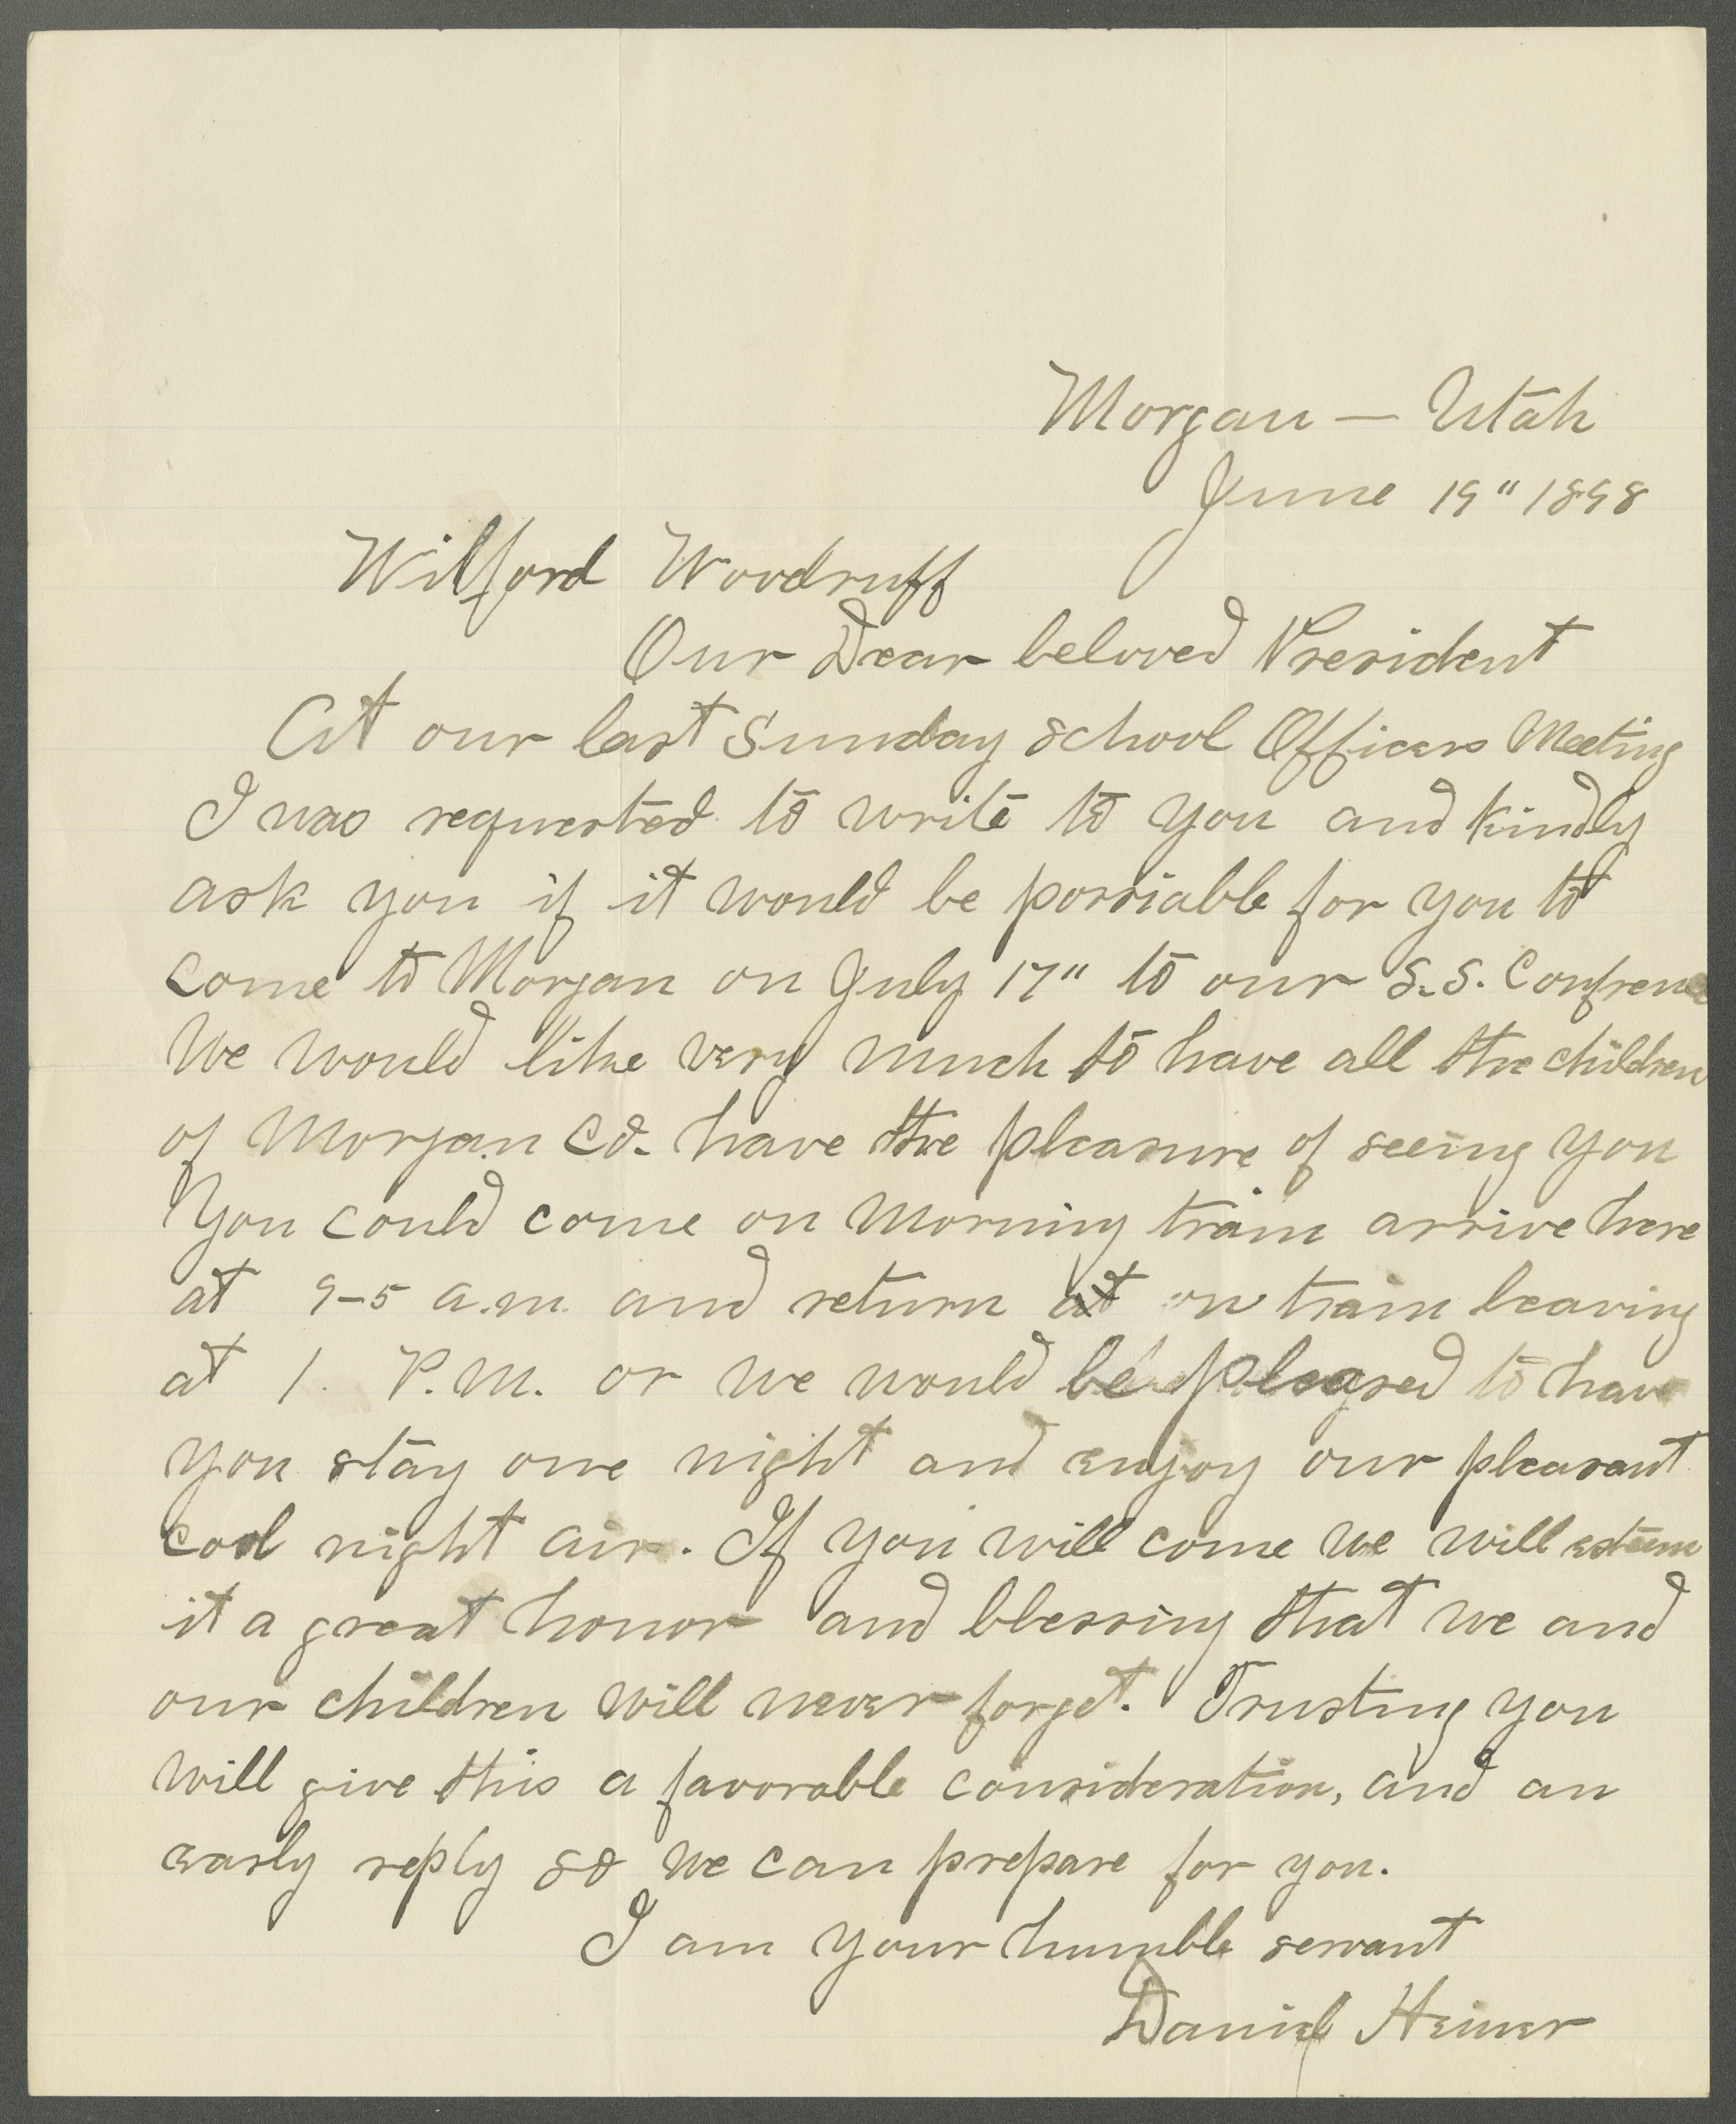 Morgan — Utah
June 19" 1898
Wilford Woodruff
Our Dear beloved President
At our last Sunday school Officers Meeting
I was requested to write to you and kindly
ask you if it would be possiable for you to
come to Morgan on July 17" to our S.S. Confrence
We would like very much to have all the children
of Morgan Co. have the pleasure of seeing you
You could come on Morning train arrive here
at 9-5 a.m. and return at on train leaving
at 1. P.M. or we would be pleased to have
you stay one night and enjoy our pleasant
cool night air. If you will come we will esteem
it a great honor and blessing that we and
our children will never forget. Trusting you
will give this a favorable consideration, and an
early reply so we can prepare for you.
I am your humble servant
Daniel Heiner